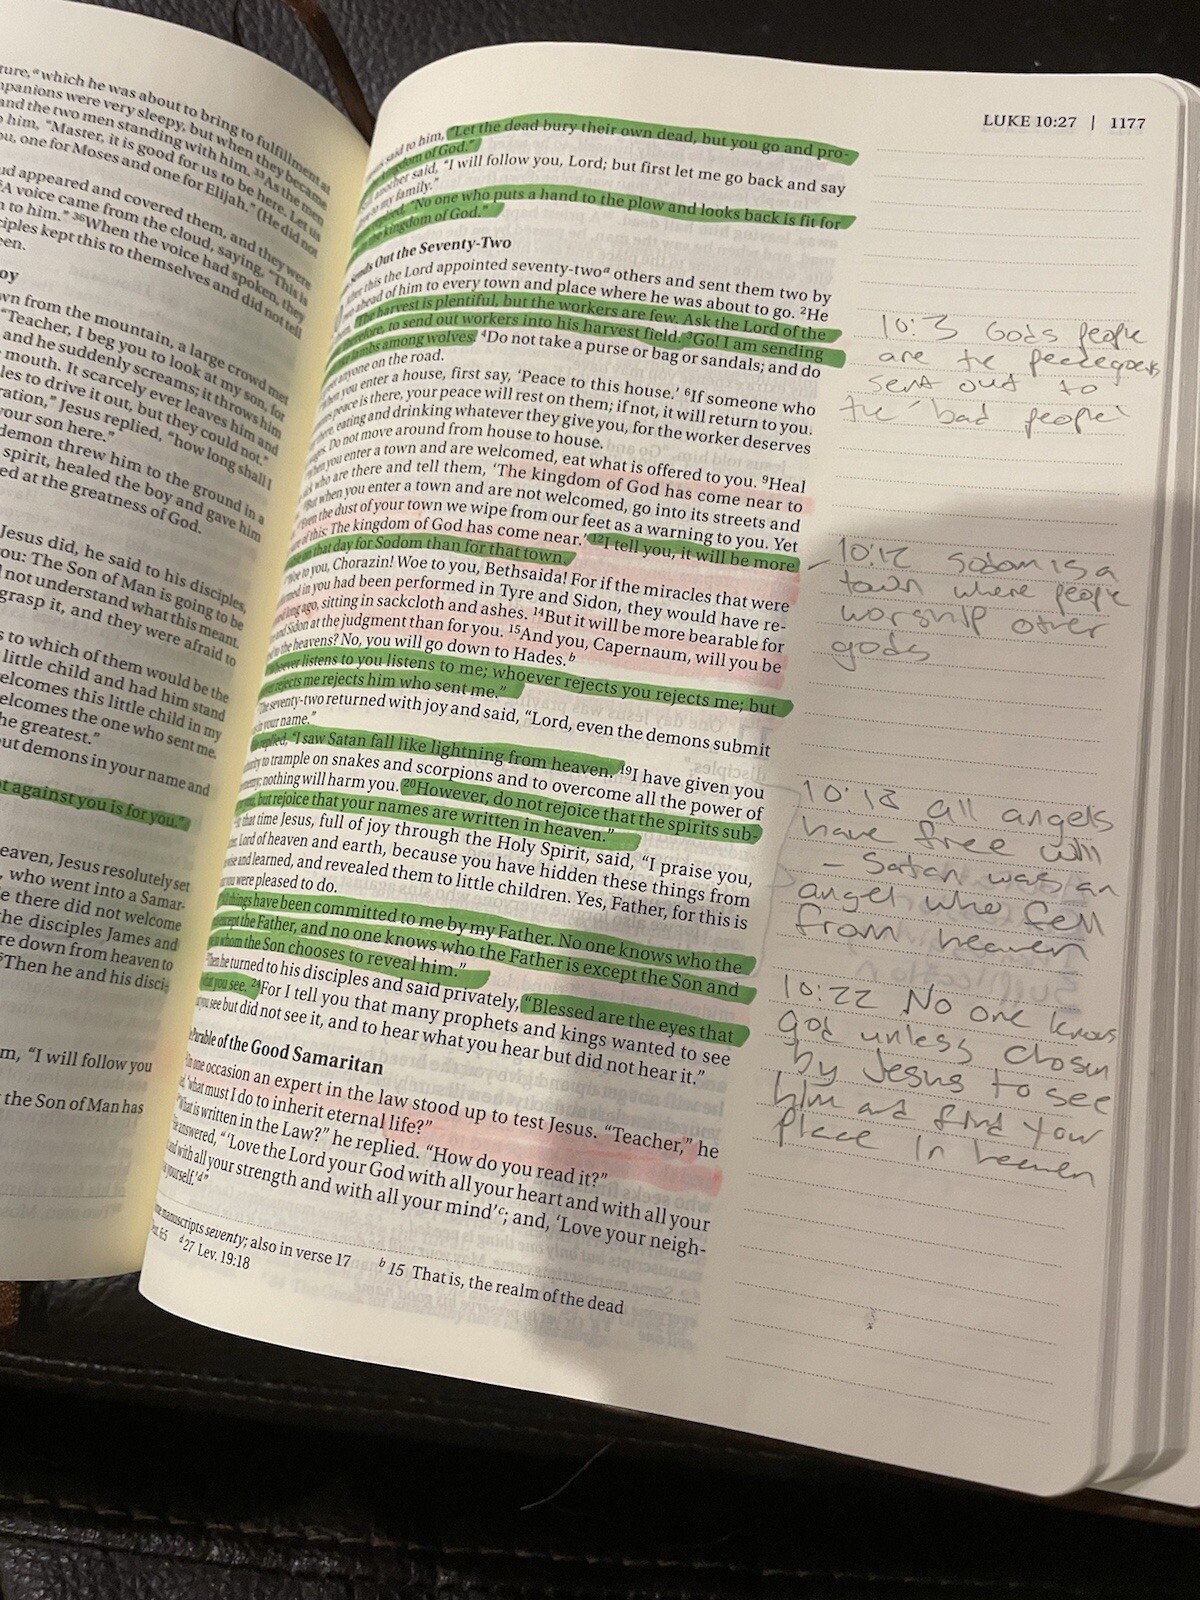 ture,ᵃ which he was about to bring to fulfillment at
mpanions were very sleepy, but when they became
and the two men standing with him. ³³As the men
him, “Master, it is good for us to be here. Let us
ou, one for Moses and one for Elijah.” (He did not
ud appeared and covered them, and they were
A voice came from the cloud, saying, “This is
n to him.” ³⁶When the voice had spoken, they
ciples kept this to themselves and did not tell
een.
oy
wn from the mountain, a large crowd met
“Teacher, I beg you to look at my son, for
and he suddenly screams; it throws him
mouth. It scarcely ever leaves him and
les to drive it out, but they could not.”
ration,” Jesus replied, “how long shall I
your son here.”
demon threw him to the ground in a
spirit, healed the boy and gave him
ed at the greatness of God.
Jesus did, he said to his disciples,
you: The Son of Man is going to be
not understand what this meant.
grasp it, and they were afraid to
s to which of them would be the
little child and had him stand
elcomes this little child in my
elcomes the one who sent me.
he greatest.”
ut demons in your name and
t against you is for you.”
eaven, Jesus resolutely set
, who went into a Samar-
e there did not welcome
he disciples James and
re down from heaven to
Then he and his disci-
m, “I will follow you
the Son of Man has
LUKE 10:27 | 1177
said to him, “Let the dead bury their own dead, but you go and pro-
kingdom of God.”
another said, “I will follow you, Lord; but first let me go back and say
to my family.”
replied, “No one who puts a hand to the plow and looks back is fit for
the kingdom of God.”
Sends Out the Seventy-Two
After this the Lord appointed seventy-twoᵃ others and sent them two by
ahead of him to every town and place where he was about to go. ²He
“The harvest is plentiful, but the workers are few. Ask the Lord of the
therefore, to send out workers into his harvest field. ³Go! I am sending
lambs among wolves. ⁴Do not take a purse or bag or sandals; and do
anyone on the road.
When you enter a house, first say, ‘Peace to this house.’ ⁶If someone who
peace is there, your peace will rest on them; if not, it will return to you.
there, eating and drinking whatever they give you, for the worker deserves
Do not move around from house to house.
When you enter a town and are welcomed, eat what is offered to you. ⁹Heal
who are there and tell them, ‘The kingdom of God has come near to
But when you enter a town and are not welcomed, go into its streets and
‘Even the dust of your town we wipe from our feet as a warning to you. Yet
of this: The kingdom of God has come near.’ ¹²I tell you, it will be more
on that day for Sodom than for that town.
“Woe to you, Chorazin! Woe to you, Bethsaida! For if the miracles that were
in you had been performed in Tyre and Sidon, they would have re-
long ago, sitting in sackcloth and ashes. ¹⁴But it will be more bearable for
and Sidon at the judgment than for you. ¹⁵And you, Capernaum, will you be
to the heavens? No, you will go down to Hades.ᵇ
whoever listens to you listens to me; whoever rejects you rejects me; but
rejects me rejects him who sent me.”
The seventy-two returned with joy and said, “Lord, even the demons submit
in your name.”
replied, “I saw Satan fall like lightning from heaven. ¹⁹I have given you
to trample on snakes and scorpions and to overcome all the power of
nothing will harm you. ²⁰However, do not rejoice that the spirits sub-
you, but rejoice that your names are written in heaven.”
that time Jesus, full of joy through the Holy Spirit, said, “I praise you,
Lord of heaven and earth, because you have hidden these things from
wise and learned, and revealed them to little children. Yes, Father, for this is
you were pleased to do.
things have been committed to me by my Father. No one knows who the
except the Father, and no one knows who the Father is except the Son and
whom the Son chooses to reveal him.”
Then he turned to his disciples and said privately, “Blessed are the eyes that
what you see. ²⁴For I tell you that many prophets and kings wanted to see
you see but did not see it, and to hear what you hear but did not hear it.”
Parable of the Good Samaritan
On one occasion an expert in the law stood up to test Jesus. “Teacher,” he
“what must I do to inherit eternal life?”
“What is written in the Law?” he replied. “How do you read it?”
answered, “‘Love the Lord your God with all your heart and with all your
and with all your strength and with all your mind’ᶜ; and, ‘Love your neigh-
yourself.’ᵈ”
manuscripts seventy; also in verse 17 ᵇ 15 That is, the realm of the dead
6:5 ᵈ 27 Lev. 19:18
10:3 Gods people
are the
sent out to
the "bad people"
10:12 Sodom is a
town where people
worship other
gods
10:18 all angels
have free will
- Satan was an
angel who fell
from heaven
10:22 No one knows
god unless chosen
by Jesus to see
him and find your
place in heaven